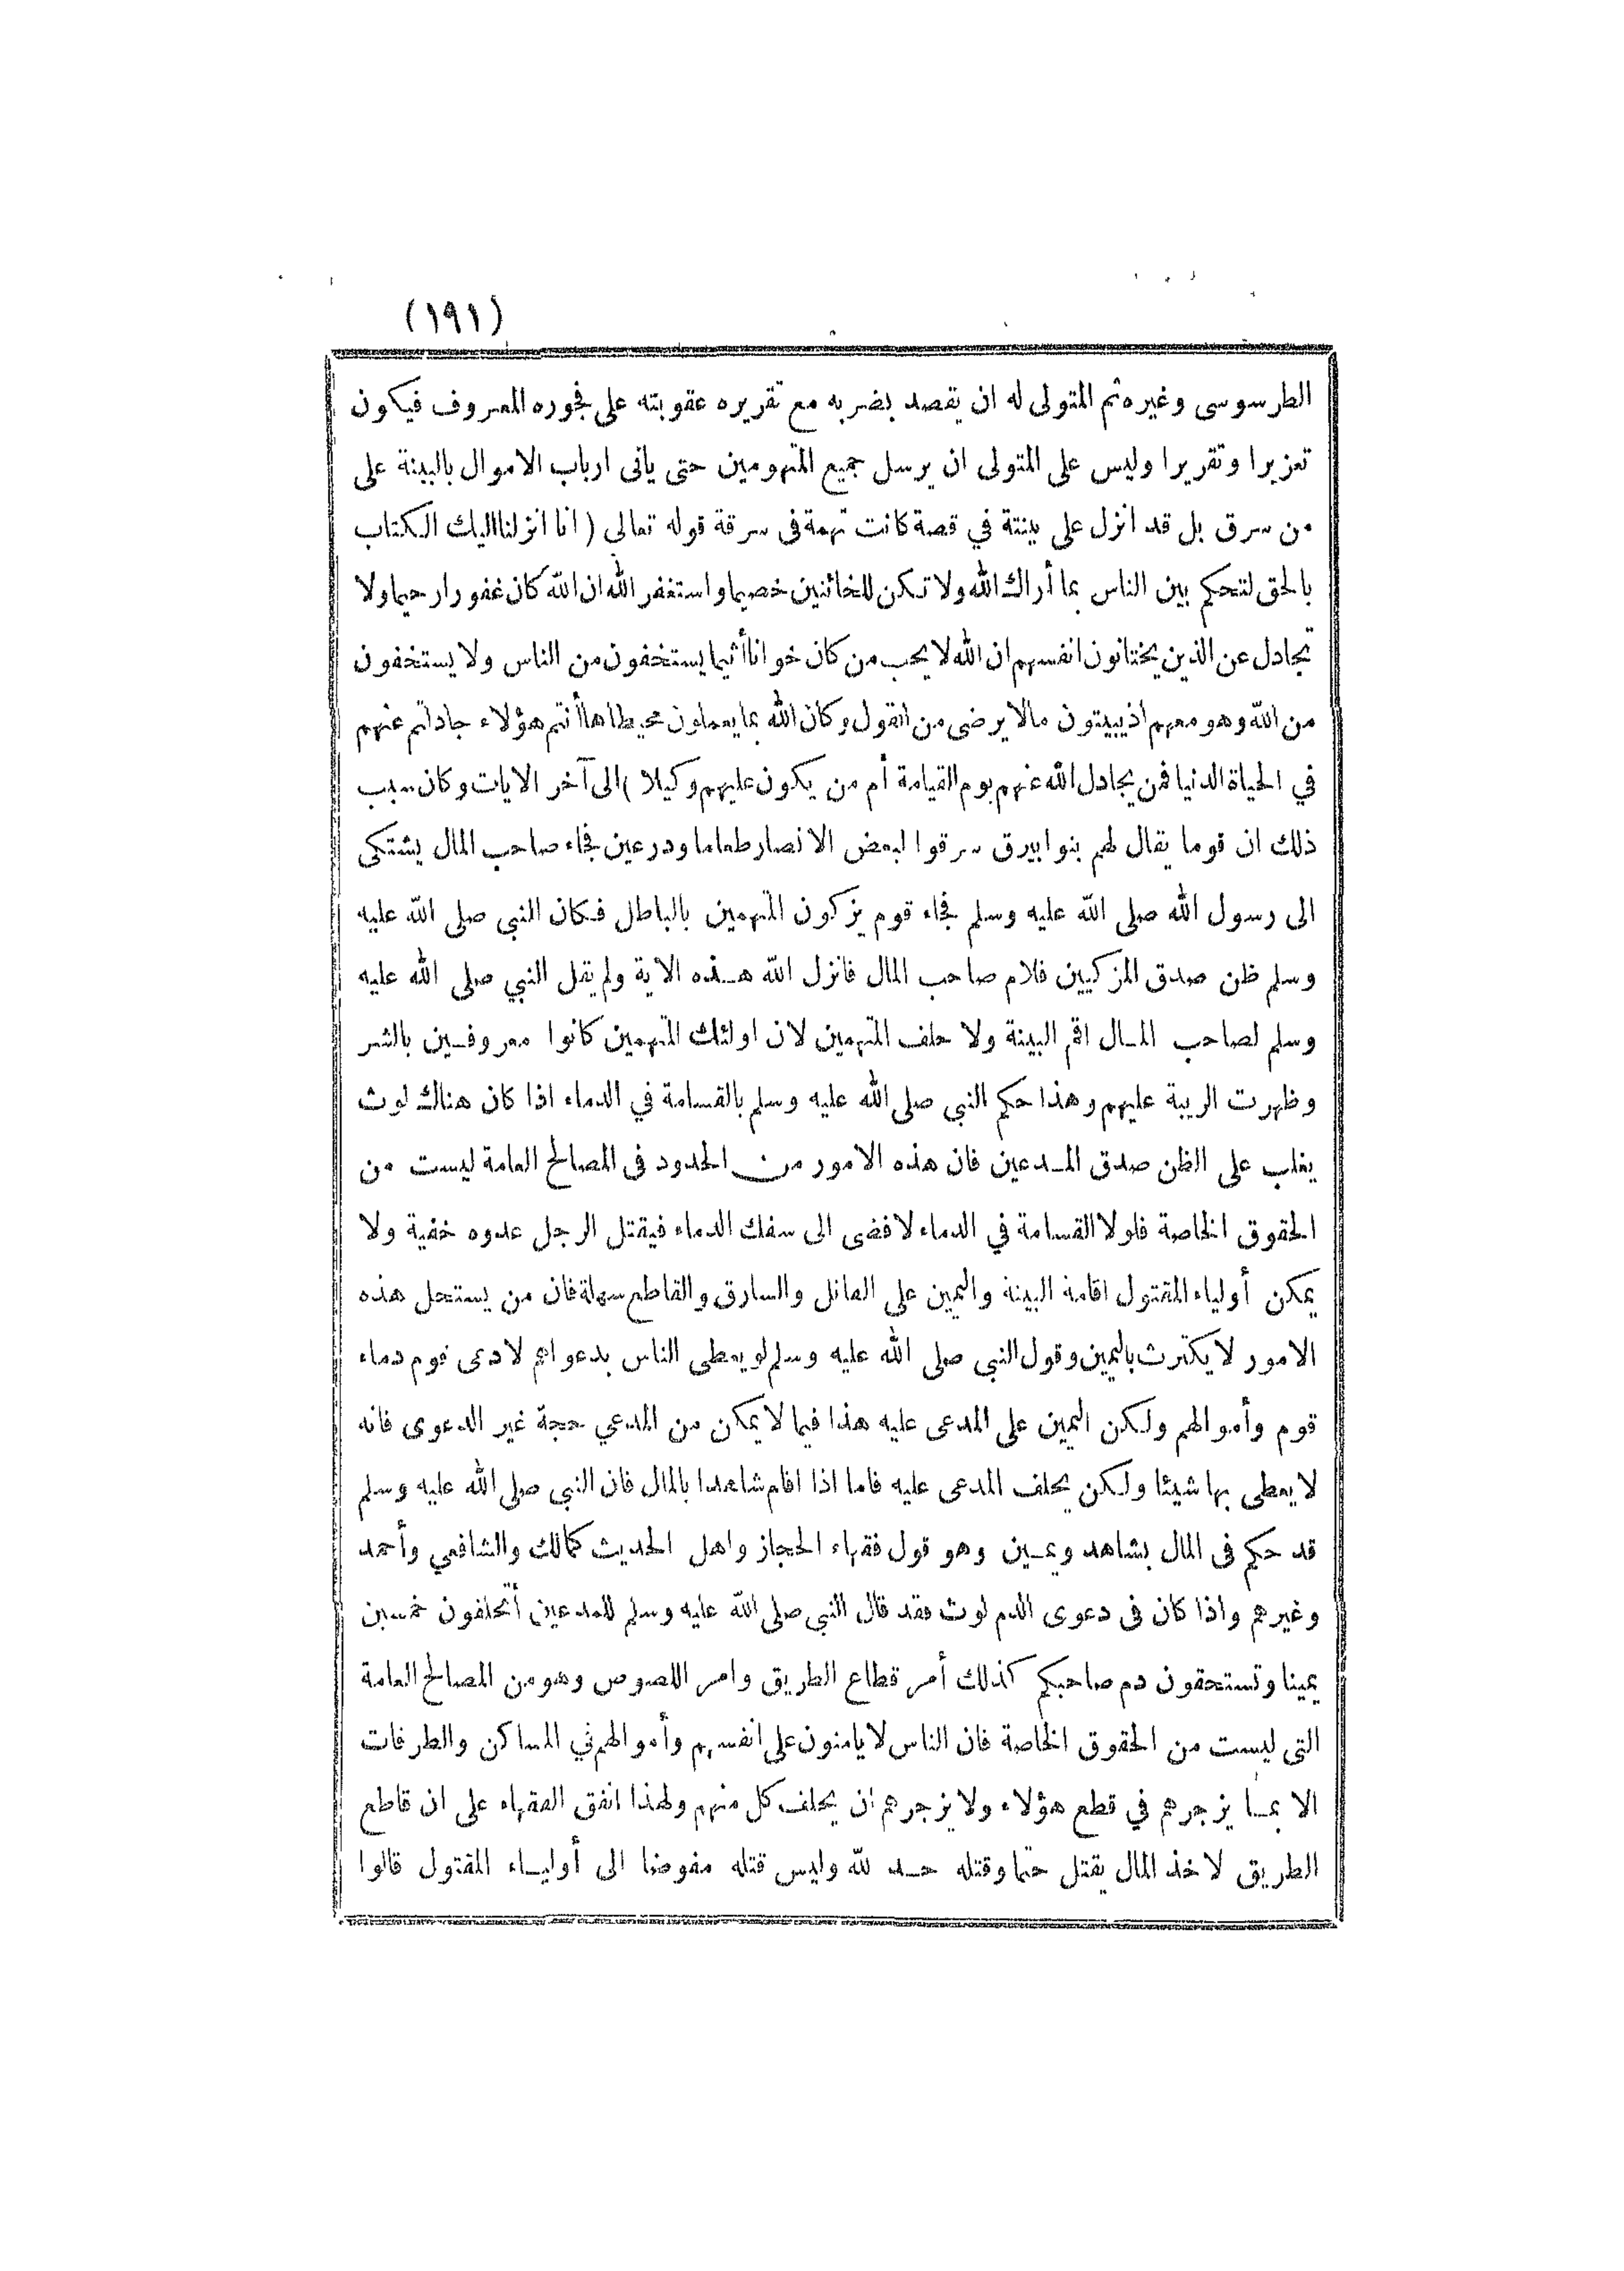 (١٩١)
الطرسوسى وغيره ثم المتولى له ان يقصد بضربه مع تقريره عقوبته على فجوره المعروف فيكون
تعزيرا وتقريرا وليس على المتولى ان يرسل جميع المتهومين حتى يأتى ارباب الاموال بالبينة على
من سرق بل قد انزل على بينتة في قصة كانت تهمة فى سرقة قوله تعالى (انا انزلنا اليك الكتاب
بالحق لتحكم بين الناس بما أراك الله ولا تكن للخائنين خصيما واستغفر الله ان الله كان غفورا رحيما ولا
تجادل عن الذين يختانون انفسهم ان الله لا يحب من كان خوانا أثيما يستخفون من الناس ولا يستخفون
من الله وهو معهم اذ يبيتون مالا يرضى من القول وكان الله بما يعملون محيطا ها أنتم هؤلاء جادلتم عنهم
في الحياة الدنيا فمن يجادل الله عنهم يوم القيامة أم من يكون عليهم وكيلا) الى آخر الايات وكان سبب
ذلك ان قوما يقال لهم بنو ابيرق سرقوا لبعض الانصار طعاما ودرعين فجاء صاحب المال يشتكى
الى رسول الله صلى الله عليه وسلم فجاء قوم يزكون المتهمين بالباطل فكان النبي صلى الله عليه
وسلم ظن صدق المزكيين فلام صاحب المال فانزل الله هذه الاية ولم يقل النبي صلى الله عليه
وسلم لصاحب المال اقم البينة ولا حلف المتهمين لان اولئك المتهمين كانوا معروفين بالشر
وظهرت الريبة عليهم وهذا حكم النبي صلى الله عليه وسلم بالقسامة في الدماء اذا كان هناك لوث
يغلب على الظن صدق المدعين فان هذه الامور من الحدود فى المصالح العامة ليست من
الحقوق الخاصة فلولا القسامة في الدماء لافضى الى سفك الدماء فيقتل الرجل عدوه خفية ولا
يمكن أولياء المقتول اقامة البينة واليمين على القاتل والسارق والقاطع سهلة فان من يستحل هذه
الامور لا يكترث باليمين وقول النبي صلى الله عليه وسلم لو يعطى الناس بدعواهم لادعى قوم دماء
قوم وأموالهم ولكن اليمين على المدعى عليه هذا فيما لا يمكن من المدعي حجة غير الدعوى فانه
لا يعطى بها شيئا ولكن يحلف المدعى عليه فاما اذا اقام شاهدا بالمال فان النبي صلى الله عليه وسلم
قد حكم فى المال بشاهد ويمين وهو قول فقهاء الحجاز واهل الحديث كمالك والشافعي وأحمد
وغيرهم واذا كان فى دعوى الدم لوث فقد قال النبي صلى الله عليه وسلم للمدعين أتحلفون خمسين
يمينا وتستحقون دم صاحبكم كذلك أمر قطاع الطريق وامر اللصوص وهو من المصالح العامة
التى ليست من الحقوق الخاصة فان الناس لا يامنون على انفسهم وأموالهم في المساكن والطرقات
الا بما يزجرهم في قطع هؤلاء ولا يزجرهم ان يحلف كل منهم ولهذا اتفق الفقهاء على ان قاطع
الطريق لاخذ المال يقتل حتما وقتله حد لله وليس قتله مفوضا الى أولياء المقتول قالوا